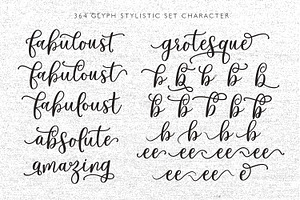 364 GLYPH STYLISTIC SET CHARACTER
fabuloust
fabuloust
fabuloust
absolute
amazing
grotesque
b b b b b
b b b b b
b b b b b
ee ee ee ee
ee ee e